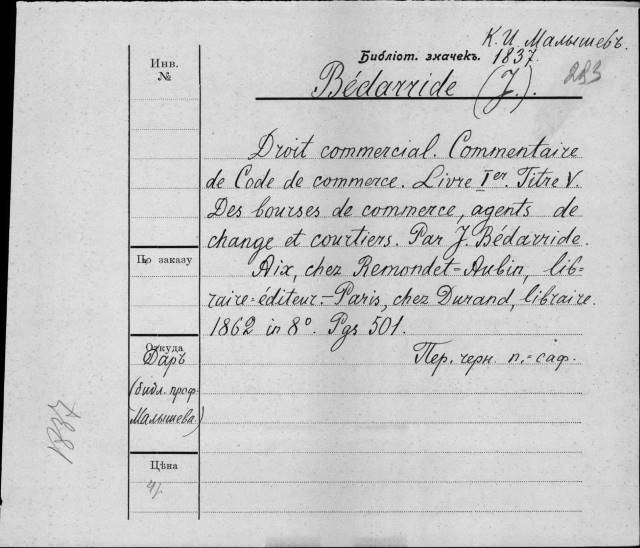 К. И. Малышевъ.
Библіот. значекъ. 1837.
Инв.
№
Bédarride (J.).
233
Droit commercial. Commentaire
de Code de commerce. Livre Ier. Titre V.
Des bourses de commerce, agents de
change et courtiers. Par J. Bédarride.
По заказу
Aix, chez Remondet=Aubin, lib=
raire=éditeur.—Paris, chez Durand, libraire.
1862 in 8°. Pgs 501.
Откуда
Даръ
Пер. черн. п.=саф.
(библ. проф.
Малышева.)
1837
Цѣна